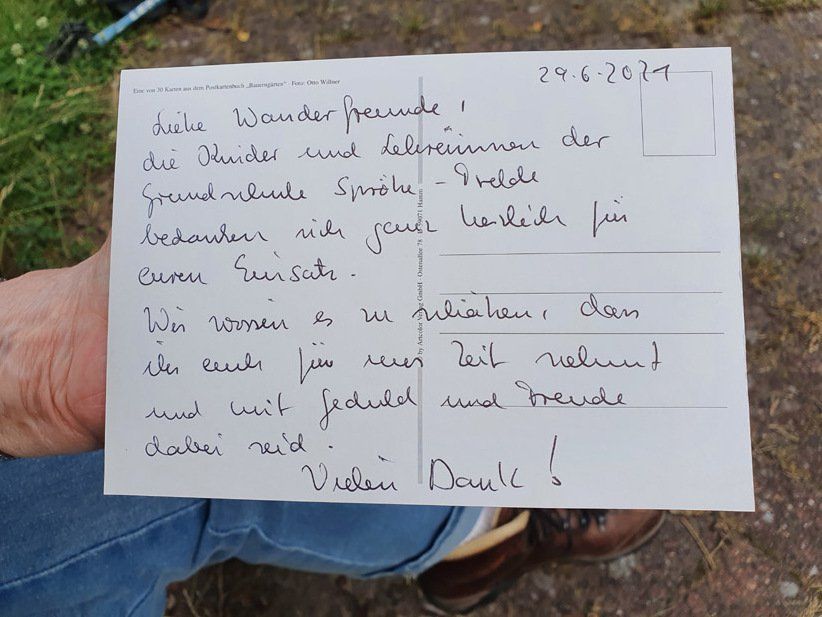 Eine von 30 Karten aus dem Postkartenbuch „Bauerngärten“ · Foto: Otto Willner
29.6.2021
Liebe Wanderfreunde,
die Kinder und Lehrerinnen der
Grundschule Spröhe-Drelde
bedanken sich ganz herzlich für
euren Einsatz.
Wir wissen es zu schätzen, dass
ihr euch für uns Zeit nehmt
und mit Geduld und Freude
dabei seid.
Vielen Dank!
by Artcolor Verlag GmbH · Ostenallee 78 · Hamm